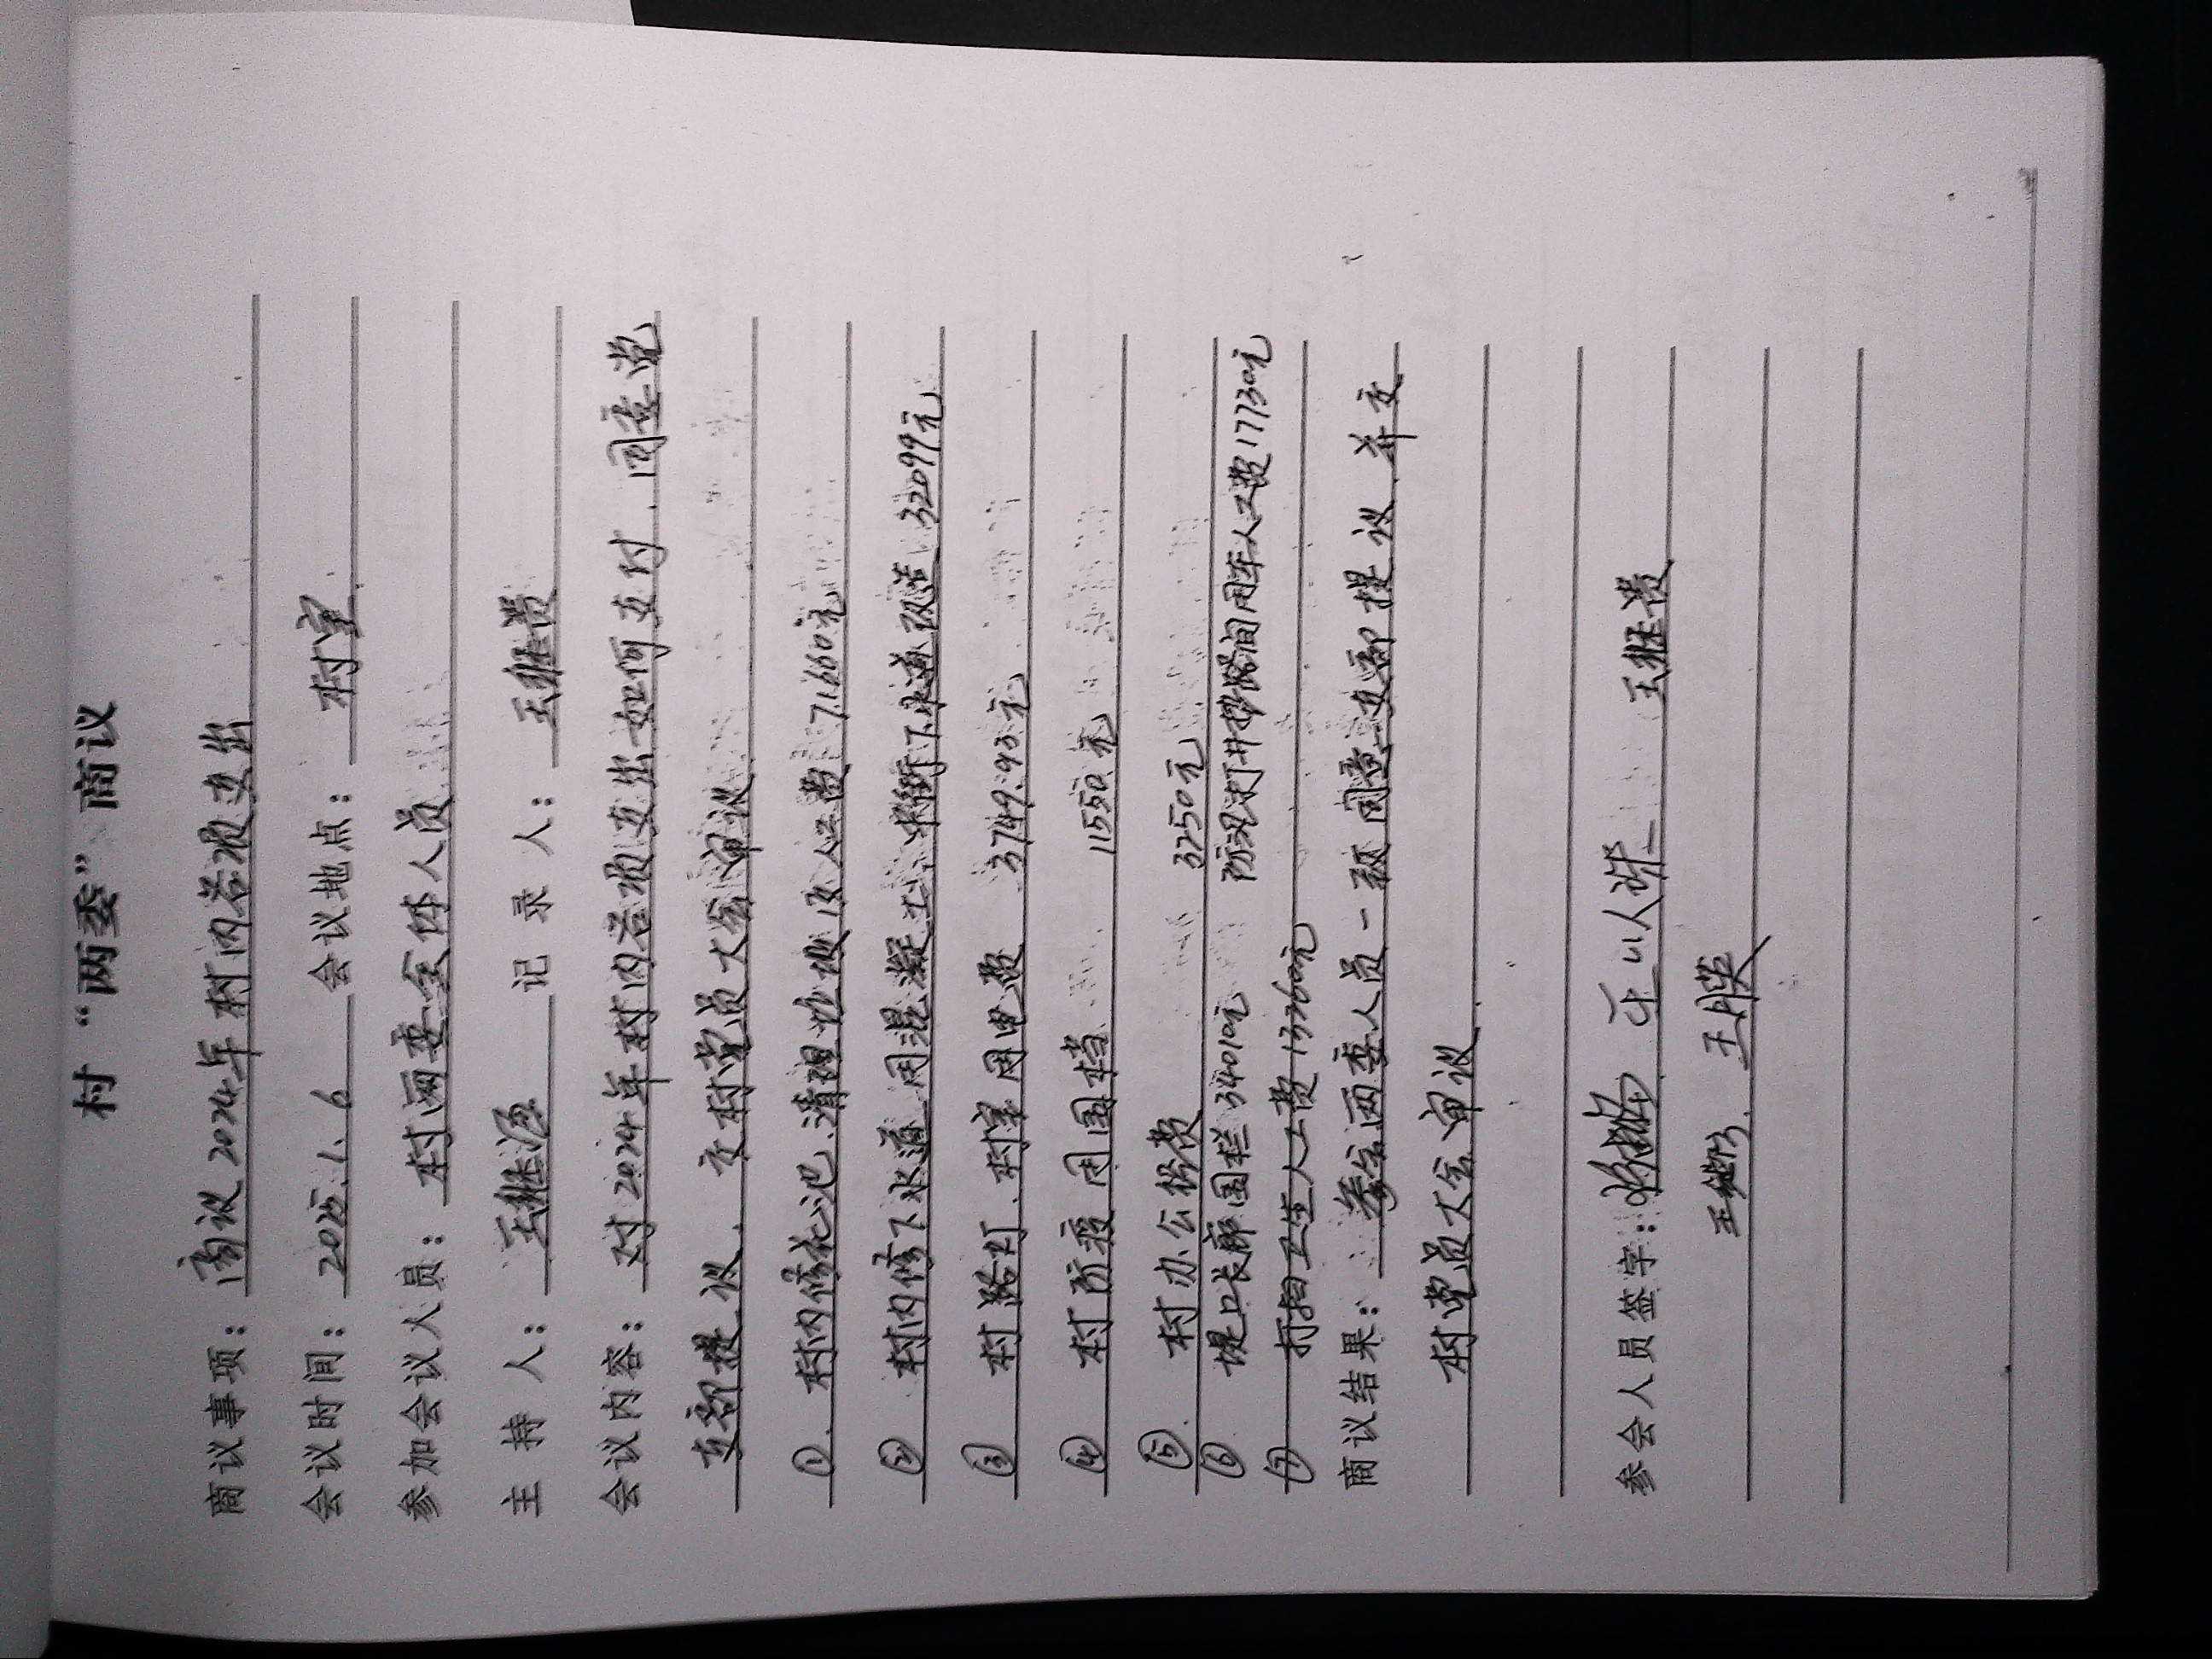 村“两委”商议
商议事项：商议2024年村内各项支出
会议时间：2025.1.6 会议地点：村室
参加会议人员：村两委全体人员
主持人：王继源 记录人：王继贵
会议内容：对2024年村内各项支出如何支付.同意党
支部提议.交村党员大会审议
① 村内修花池.清理垃圾及人工费71660元
② 村内修下水道用混凝土.中街下水道改造32099元
③ 村路灯.村室用电费 3749.93元
④ 村防疫用围档 11550元
⑤ 村办公杂费 3250元
⑥ 堤口长廊围栏34010元 防汛打井撑路间用车人工费17730元
⑦ 打扫卫生人工费13760元
商议结果：参会两委人员一致同意支部提议.并交
村党员大会审议
参会人员签字： 王继贵
王胜英